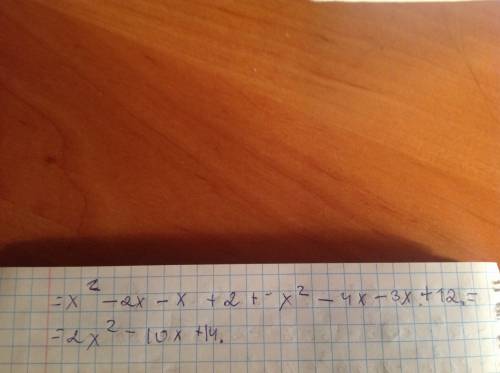 =x² -2x -x +2 + x² -4x -3x +12 =
=2x² -10x +14.